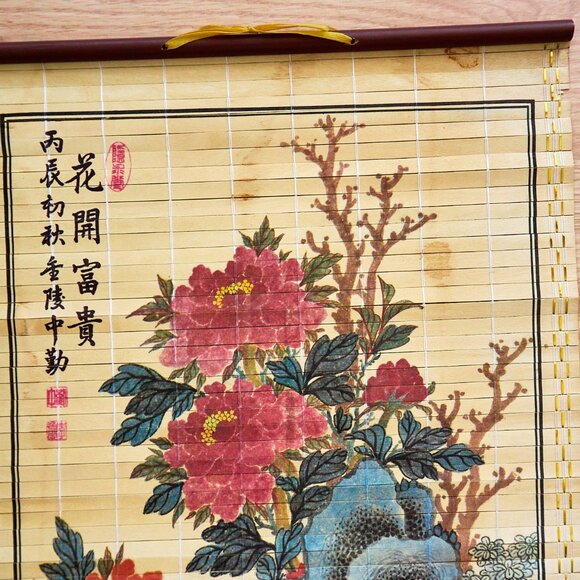 花開富貴
丙辰初秋金陵中勤